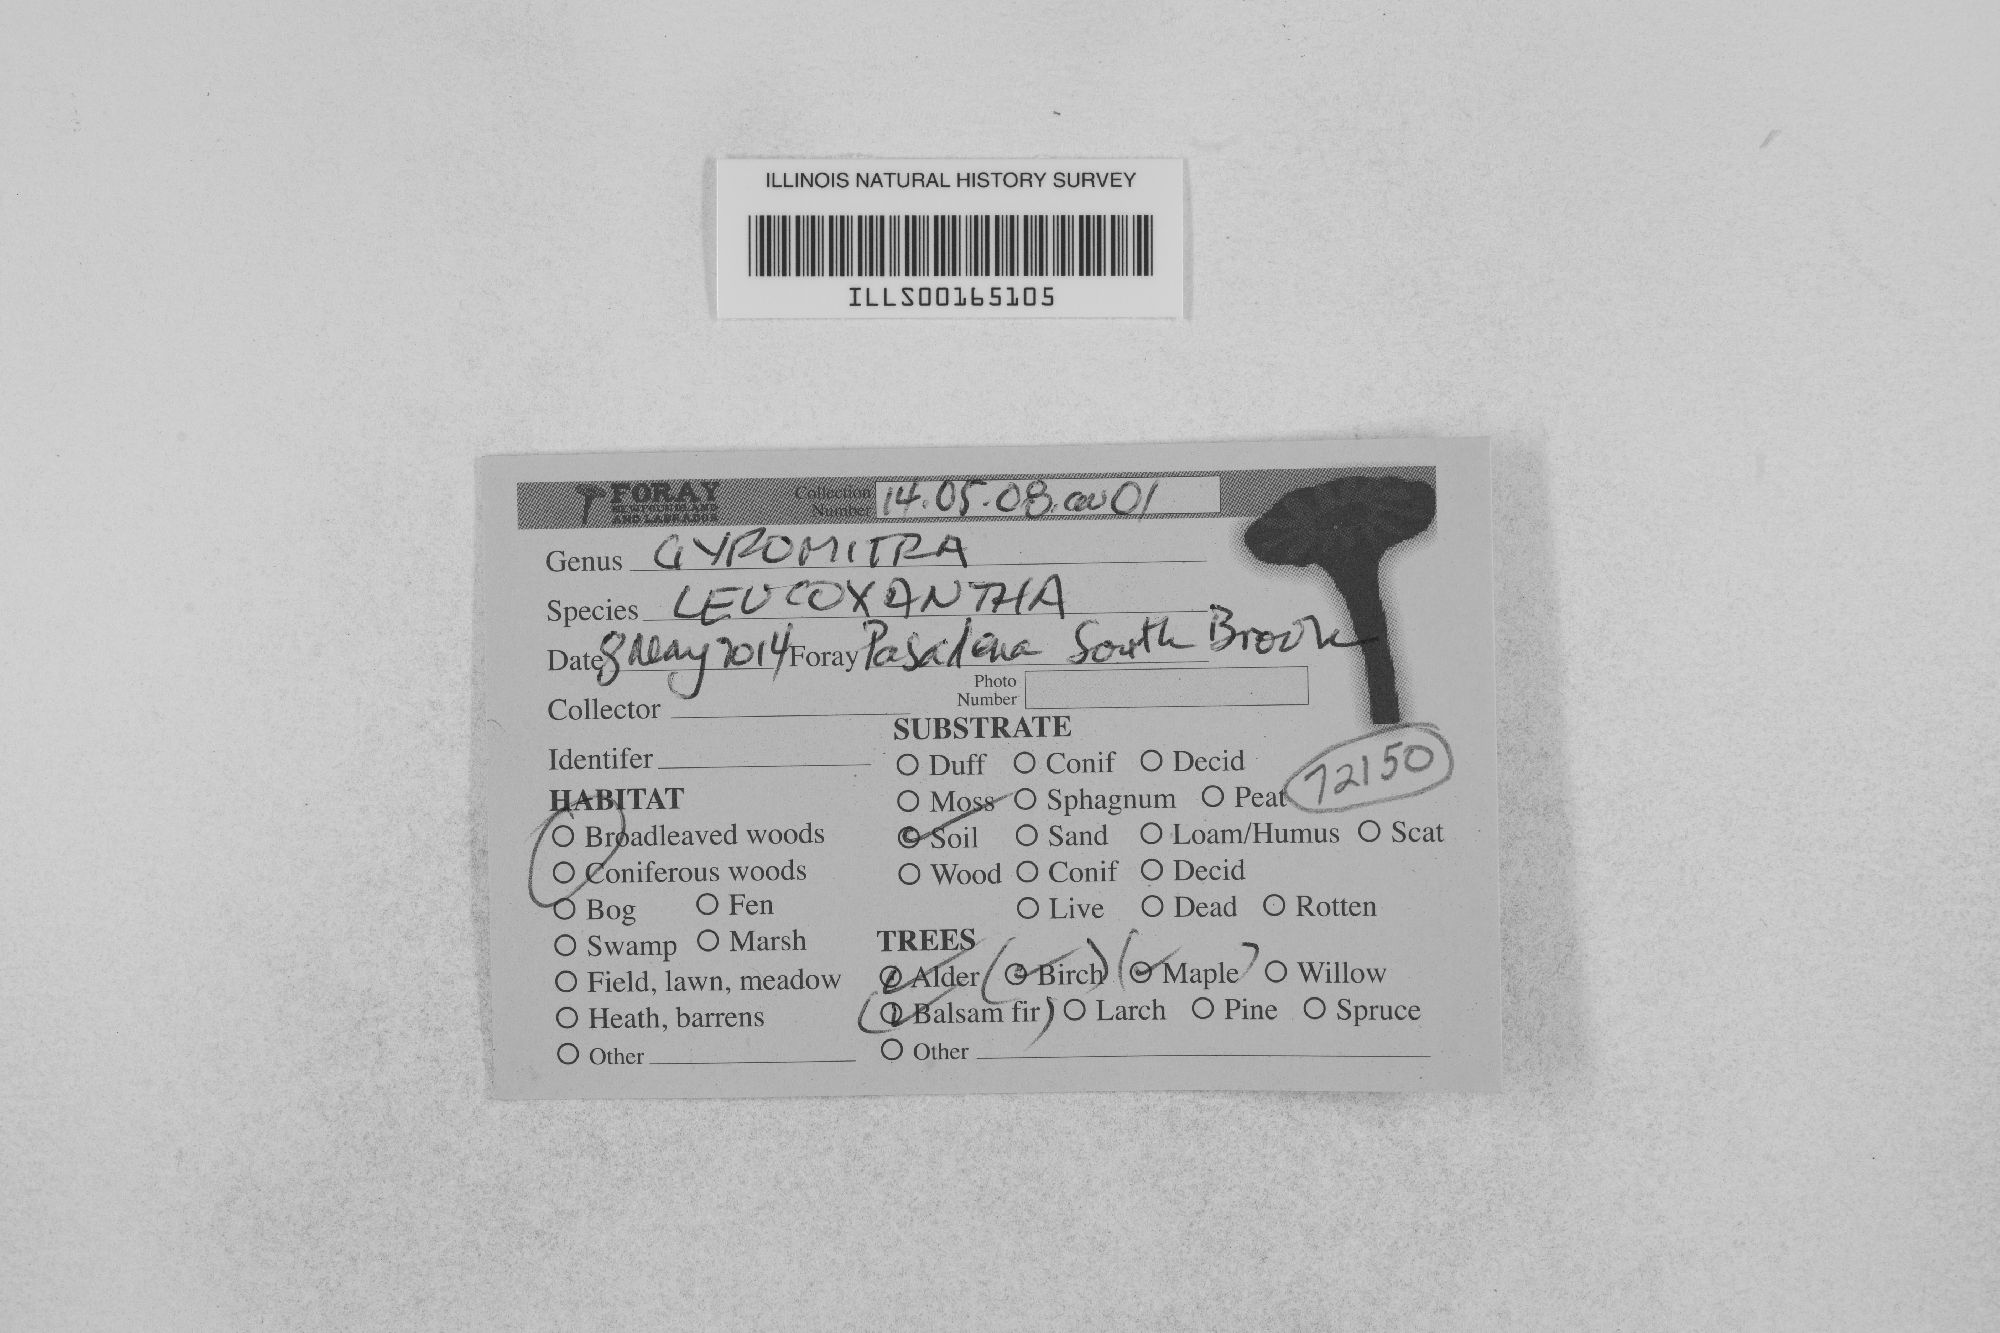 ILLINOIS NATURAL HISTORY SURVEY
ILLS00165105
FORAY NEWFOUNDLAND AND LABRADOR
Collection Number 14.05.08.av01
Genus GYROMITRA
Species LEUCOXANTHA
Date 8 May 2014 Foray Pasadena South Brook
Photo Number
Collector
SUBSTRATE
Identifer
Duff Conif Decid
72150
HABITAT
Moss Sphagnum Peat
Broadleaved woods
Soil Sand Loam/Humus Scat
Coniferous woods
Wood Conif Decid
Bog Fen
Live Dead Rotten
Swamp Marsh
TREES
Field, lawn, meadow
Alder (Birch) (Maple) Willow
Heath, barrens
(Balsam fir) Larch Pine Spruce
Other
Other